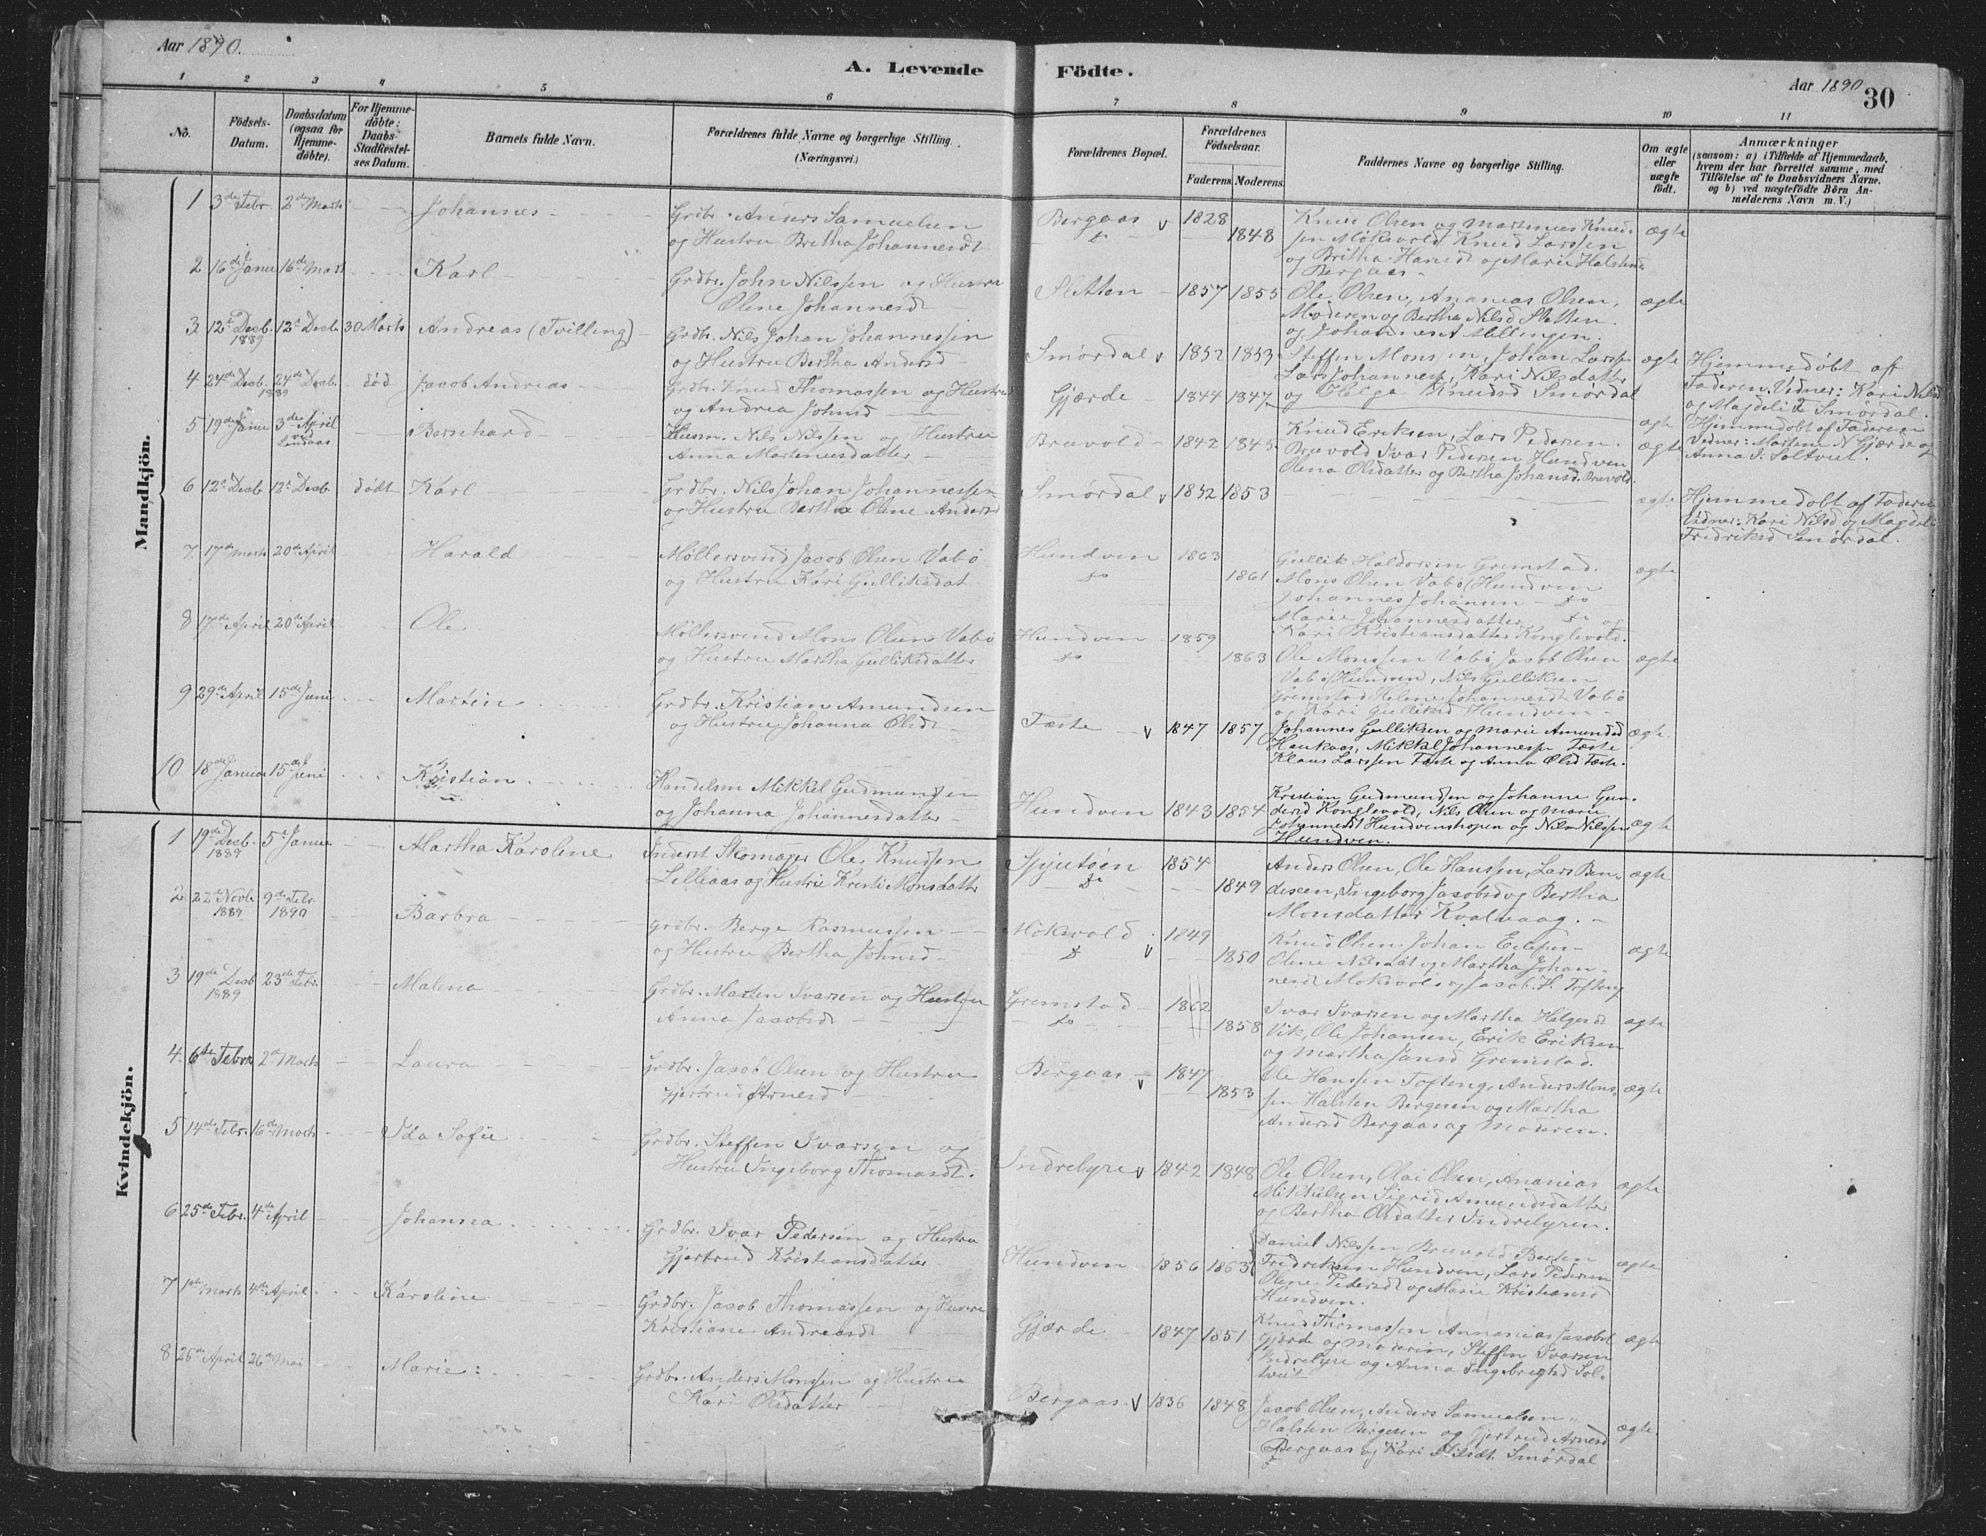 Aar 1890.
A. Levende Födte.
Aar 1890
30
1 2 3 4 5 6 7 8 9 10 11
No.
Födsels-Datum.
Daabsdatum (ogsaa for Hjemme-döbte).
For Hjemme-döbte: Daabs-Stadfæstel-ses Datum.
Barnets fulde Navn.
Forældrenes fulde Navne og borgerlige Stilling.
(Næringsvei.)
Forældrenes Bopæl.
Forældrenes Födselsaar.
Faderens. Moderens.
Faddernes Navne og borgerlige Stilling.
Om ægte eller uægte födt.
Anmærkninger
(saasom: a) i Tilfælde af Hjemmedaab,
hvem der har forrettet samme, med
Tilföielse af to Daabsvidners Navne,
og b) ved uægtefödte Börn An-
melderens Navn m. V.)
Mandkjön.
1 3de Febr. 2de Marts Johannes
Grdbr. Anders Samuelsen
og Hustru Britha Johannesdt.
Bergaas 1828
do 1848
Knud Olsen og Martinus Knud-
sen Möksvold Knud Larssen
og Britha Hansd og Marie Halstensd
Bergaas
ægte
2 16de Janu 16de Marts Karl
Grdbr. John Nilssen og Hustru
Oline Johannesd
Sletten 1857 1855
Ole Olsen, Ananias Olsen,
Moderen og Bertha Nilsd Sletten
og Johannes
ægte
3 12te Decb. 1889 12te Decb. 30 Marts Andreas (Tvilling)
Grdbr. Nils Johan Johannessen
og Hustru Bertha Andersd
Smördal 1852 1853
Steffen Monsen, Johan Larss.
Lars Johanness, Kari Nilsdatter
og Helga Knudsd Smördal
ægte
Hjemmedöbt af
Faderen. Vidner: Kari Nilsd
og Magdeli Smördal.
4 24de Decb. 1889 24de Decb. död Jacob Andreas
Grdbr. Knud Thomassen og Hustru
og Andrea Johnsd
Gjærde 1844 1847
ægte
Hjemmedöbt af Faderen
Vidner: Martine N Gjærde og
Anna J. Soltveit.
5 19de Janu 3de April Bernhard
Husm. Nils Nilssen og Hustru
Anna Martinusdatter
Bruvold 1842 1845
Knud Eriksen, Lars Pedersen
Bruvold Ivar Pedersen Hundven
Olena Olsdatter og Bertha Johansd. Bruvold
ægte
6 12te Decb. 12te Decb. dödt Karl
Grdbr. Nils Johan Johannessen
og Hustru Bertha Oline Andersd
Smördal 1852 1853
ægte
Hjemmedöbt af Faderen
Vidner: Kari Nilsd og Magdeli
Fridriksd Smördal.
7 17de Marts 20de April Harald
Möllersvend Jacob Olsen Vabö
og Hustru Kari Gulliksdat.
Hundven 1863
do 1861
Gullik Haldorsen Gremstad
Mons Olsen Vabö/Hundven
Johannes Johansen do
Marie Johannesdatter do og
Kari Kristiansdatter Konglevold.
ægte
8 17de April 20de April Ole
Möllersvend Mons Olsen Vabö
og Hustru Martha Gulliksdatter
Hundven 1859
do 1863
Ole Monssen Vabö, Jacob Olsen
Vabö/Hundven, Nils Gulliksen
Gremstad Helene Johannesdt Vabö
og Kari Gulliksd Hundven
ægte
9 29de April 15de Juni Martin
Grdbr. Kristian Amundsen
og Hustru Johanna Olsd
Tæste 1847 1857
Johannes Gulliksen og Marie Amundsd
Haukaas, Mikkal Johannessen Tæste
Klaus Larssen Tæste og Anna Olsd Tæste.
ægte
10 18de Januar 15de Juni Kristian
Handelsm Mikkel Gudmundsen
og Johanna Johannesdatter
Hundven 1843 1854
Kristian Gudmundsen og Johanne Gun-
dersd Konglevold, Nils Olsen og Marie
Johannesdt Hundvenshopen og Nils Nilssen
Hundven.
ægte
Kvindekjön.
1 19de Decb. 1889 5te Januar Martha Karoline
Inderst Skomager Ole Knudsen
Lilleaas og Hustru Kristi Monsdatter
1854
do 1849
Anders Olsen, Ole Hanssen, Lars Ben-
dixen, Ingeborg Jacobsd og Bertha
Monsdatter Kvalvaag.
ægte
2 22de Novb 1889 9de Febr. 1890 Barbra
Grdbr. Berge Rasmussen
og Hustru Bertha Johnsd
Möksvold 1849
do 1850
Knud Olsen Johan
Oline Nilsdat og Martha Johan-
nesd Möksvold og Jacob. H. Tofting
ægte
3 19de Decb 1889 23de Febr. Malena
Grdbr. Marten Ivarsen og Hustru
Anna Jacobsdt
Gremstad 1862
do 1858
Ivar Ivarsen og Martha Helgesdt
Vik, Ole Johansen, Erik Eriksen
og Martha Jansd Gremstad.
ægte
4. 6te Febru 2de Marts Laura
Grdbr. Jacob Olsen og Hustru
Gjertrud Arnesd
Bergaas 1847
1853
Ole Hanssen Tofting, Anders Mons-
sen Halsten Bergesen og Martha
Andersd Bergaas og Moderen.
ægte
5 14de Febr. 16de Marts Ida Sofie
Grdbr. Steffen Ivarsen og
Hustru Ingeborg Thomasdt.
Indrebyre 1842 1848
Ole Olsen, Olai Olsen, Ananias
Mikkelsen Sigrid Amundsdatter
og Bertha Olsdatter Indrebyren.
ægte
6 25de Febr. 4de April Johanna
Grdbr. Ivar Pedersen og Hustru
Gjertrud Kristiansdatter
Hundven 1856 1863
Daniel Nilssen Bruvold Bertin
Fredriksen Hundven, Lars Pedersen
Oline Pedersdt og Marie Kristiansd
Hundven.
ægte
7 1ste Marts 4de April Karoline
Grdbr. Jacob Thomassen og Hustru
Kristiane Andreasdt
Gjærde 1847 1851
Knud Thomassen Annanias Jacobst
Gjærde og Moderen, Steffen Ivarsen
Indrebyre og Anna Ingebrigtsd Sol-
tveit
ægte
8 26de April 26de Mai Marie
Grdbr. Anders Monssen og Hustru
Kari Olsdatter
Bergaas 1836 1848
Jacob Olsen, Anders Samuelsen
Halsten Bergesen og Gjertrud Arnesd
Bergaas og Kari Nilsdt. Smördal
ægte